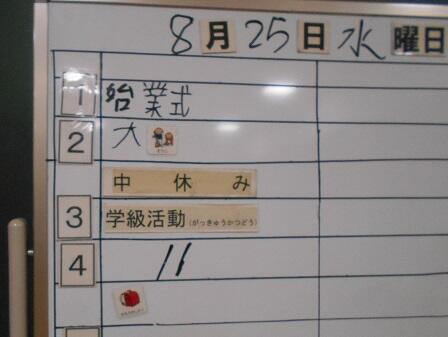 8月25日水曜日
1 始業式
2 大
中休み
3 学級活動(がっきゅうかつどう)
4 〃